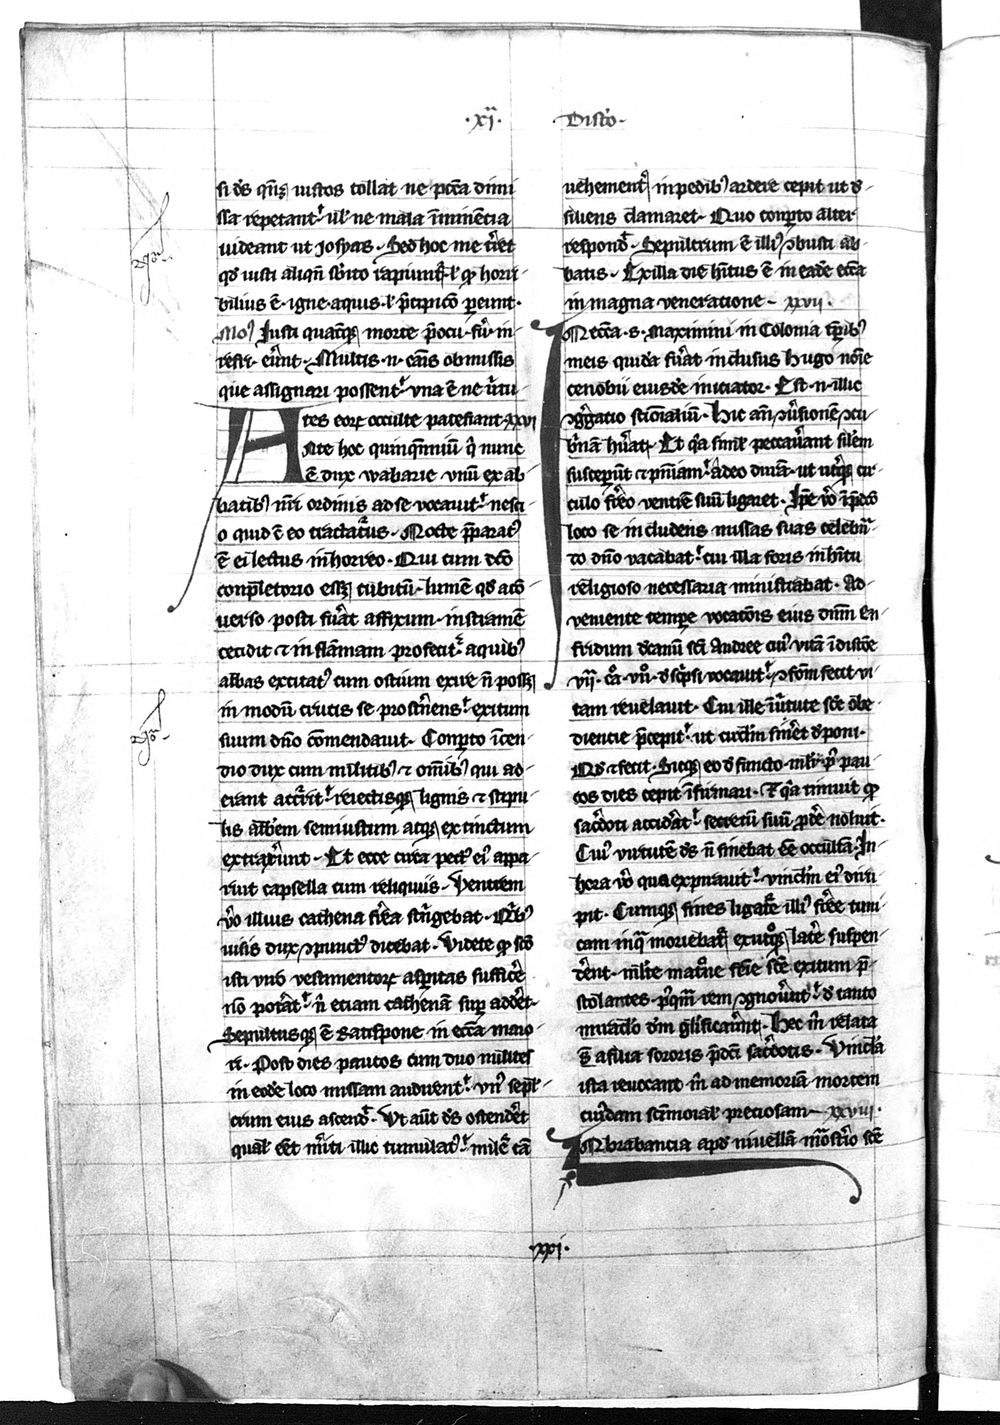 ·xi·
Distco·
si ds qnꝫ iustos tollat ne pcca dimi
ssa repetant᷑ ul' ne mala īminēcia
uideant ut Josyas· Sed hoc me t'ret
qd iusti aliqn sb'ito rapiunt᷑·l' qd horri
bilius ē·igne·aquis·l' p̄cipicō pereunt·
Mo' Justi quacūqꝫ morte p̄ocu·fu'·in
refri·erunt· Multis·n·causis obmissis
que assignari possent᷑ una ē ne u'tu
tes eorꝝ occulte patefiant·xxvi
Ante hoc quinqnniū q' nunc
ē dux wabarie unū ex ab
batib' nr̄i ordinis ad se vocauit᷑ nesci
o quid ē eo tractat'us· Nocte p̄parat'
ē ei lectus in horreo· Qui cum dcō
conpletorio essꝫ cubitū·lumē qd ad
uerso posti fuāt affixum·in stramē
cecidit ⁊ in flāmam profecit᷑ a quib'
abbas excitat' cum ostium exire n̄ possꝫ
in modū crucis se prosternens᷑ exitum
suum dno cōmendauit· Conperto īcen
dio dux cum militib' ⁊ omīb' qui ad
erant accurrit᷑ reiectisqꝫ lignis ⁊ stipu
lis abbem semiustum atqꝫ extinctum
extraxerunt· Et ecce circa pect' ei' appa
ruit capsella cum reliquiis· Ventrem
uo illius cathena ferrea stringebat· Qb'
uisis dux ɔpunct' dicebat· Videte qd scō
isti uiro vestimentorꝝ asperitas sufficē
nō poterat᷑ n̄ etiam cathenā sup adderet·
Sepultusqꝫ ē Ratispone in ecc̄a maio
ri· Post dies paucos cum duo milites
in eode loco missam audirent᷑ vn' sepl
crum eius ascend'· Ut aut ds ostenderet
qual' eet m'iti illic tumulat'᷑ mile tā
uehement' in pedib' ardere cepit ut d'
siliens clamaret· Quo conperto alter
respond'· Sepulcrum ē illi' ɔbusti ab
batis· Ex illa die hitus ē in eadē ecc̄a
in magna ueneratione· xxvii·
In ecc̄a·s·Maximini in Colonia tp̄rib'
meis quidā fuāt inclusus hugo noīe
cenobii eiusdē iniciator· Est·n·illic
ɔgregatio sc̄imonialiū· Hic añ ɔuersionē ɔcu
binā huerat· Et qa simul peccauerant simul
susceperūt ⁊ pniam᷑ adeo durā·ut ut'qꝫ cir
culo ferreo ventrē suū ligaret· Ipē uo īpdco
loco se includens missas suas celebran
do dno vacabat᷑ cui illa foris in hitu
religioso necessaria ministrabat· Ad
ueniente tempe vocatōis eius dnm En
fridum decanū sci Andree cui' uitā ī distcōe
vii·ca·vii·descripsi vocauit᷑ ɔfess fecit vi
tam reuelauit· Cui ille ī uirtute scē obe
diencie p̄cepit᷑ ut circlm sineret deponi·
Qd ⁊ fecit· Sicqꝫ eo defuncto mulier p' pau
cos dies cepit īfirmari· Et qa timuit qd
sacerdoti acciderat᷑ secretū suū prodē noluit·
Cui' virtutē ds n̄ sinebat eē occultā· In
hora uo qua expirauit᷑ vinclm ei' diru
pit· Cumqꝫ fines ligatē illi' ferree tuni
cam in qua moriebat᷑ exutoqꝫ latē suspen
derent· mlte matrone ferie scē exitum p̄
stolantes·p'qm rem ɔgnouerunt᷑ d' tanto
miraclo dm glificarunt· Hec m' relata
s' a filia sororis p̄dci sacerdotis· Vincla
ista reuocant m' ad memoriā mortem
cuiusdam scimonial' preciosam· xxviii·
In brabancia apd niuellā mōast'io scē
·xxi·